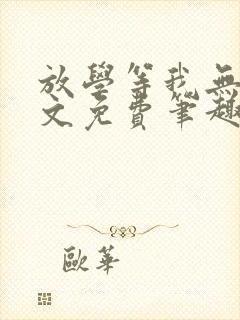 放學等我無
文免費筆趣
歐華